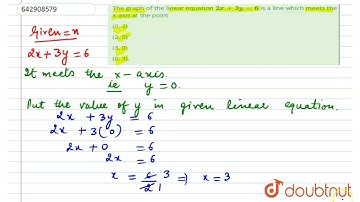 642908579
The graph of the linear equation 2x + 3y = 6 is a line which meets the
x-axis at the point
(0, 2)
(2, 0)
(3, 0)
(0, 3)
Given = x
2x + 3y = 6
It meets the x-axis.
ie y = 0.
Put the value of y in given linear equation.
2x + 3y = 6
2x + 3(0) = 6
2x + 0 = 6
2x = 6
x = 6/2 3 1 ⇒ x = 3
doubtnut